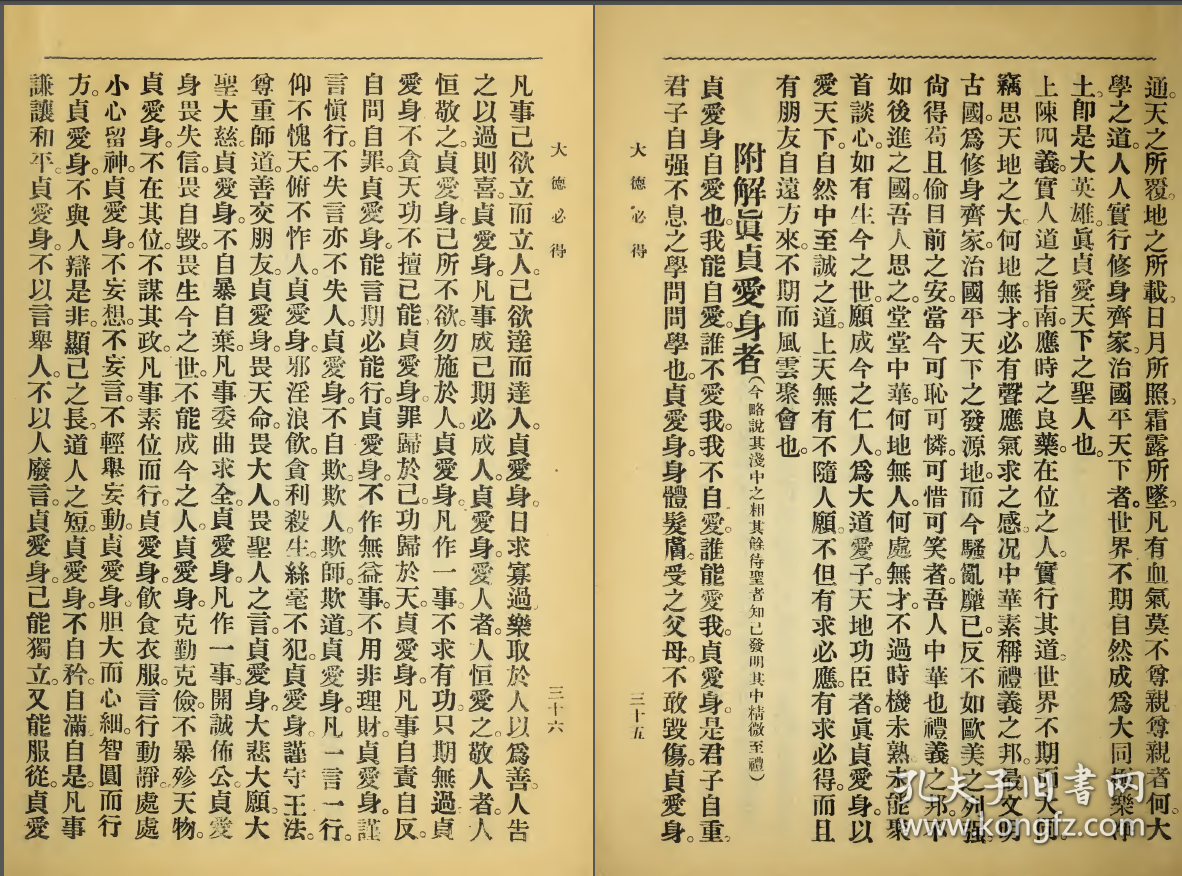 通天之所覆。地之所載。日月所照。霜露所墜。凡有血氣。莫不尊親。尊親者何。大
學之道。人人實行修身齊家治國平天下者。世界不期自然成爲大同極樂
土。卽是大英雄。眞貞愛天下之聖人也。
上陳四義。實人道之指南。應時之良藥。在位之人。實行其道。世界不期而大同
竊思天地之大。何地無才。必有聲應氣求之感。况中華素稱禮義之邦。最文明
古國。爲修身齊家。治國平天下之發源地。而今騷亂靡已。反不如歐美之列强。
尙得苟且偷目前之安。當今可恥可憐。可惜可笑者。吾人中華也。禮義之邦。不
如後進之國。吾人思之。堂堂中華。何地無人。何處無才。不過時機未熟。未能聚
首談心。如有生今之世。願成今之仁人。爲大道愛子。天地功臣者。眞貞愛身。以
愛天下。自然中至誠之道。上天無有不隨人願。不但有求必應。有求必得。而且
有朋友自遠方來。不期而風雲聚會也。
附解眞貞愛身者（今略說其淺中之粗其餘待聖者知己發明其中精微至禮）
貞愛身自愛也。我能自愛。誰不愛我。我不自愛。誰能愛我。貞愛身。是君子自重
君子自强不息之學問。問學也。貞愛身。身體髮膚。受之父母。不敢毀傷。貞愛身。
大德必得
三十五
大德必得
三十六
凡事己欲立而立人。己欲達而達人。貞愛身。日求寡過。樂取於人以爲善。人告
之以過則喜。貞愛身。凡事成己。期必成人。貞愛身。愛人者。人恒愛之。敬人者。人
恒敬之。貞愛身。己所不欲。勿施於人。貞愛身。凡作一事。不求有功。只期無過。貞
愛身。不貪天功。不擅己能。貞愛身。罪歸於己。功歸於天。貞愛身。凡事自責自反。
自問自罪。貞愛身。能言期必能行。貞愛身。不作無益事。不用非理財。貞愛身。謹
言愼行。不失言。亦不失人。貞愛身。不自欺欺人。欺師欺道。貞愛身。凡一言一行。
仰不愧天。俯不怍人。貞愛身。邪淫浪飮。貪利殺生。絲毫不犯。貞愛身。謹守王法。
尊重師道。善交朋友。貞愛身。畏天命。畏大人。畏聖人之言。貞愛身。大悲大願。大
聖大慈。貞愛身。不自暴自棄。凡事委曲求全。貞愛身。凡作一事。開誠佈公。貞愛
身。畏失信。畏自毀。畏生今之世。不能成今之人。貞愛身。克勤克儉。不暴殄天物。
貞愛身。不在其位。不謀其政。凡事素位而行。貞愛身。飮食衣服。言行動靜。處處
小心留神。貞愛身。不妄想。不妄言。不輕舉妄動。貞愛身。胆大而心細。智圓而行
方。貞愛身。不與人辯是非。顯己之長。道人之短。貞愛身。不自矜。自滿自是。凡事
謙讓和平。貞愛身。不以言舉人。不以人廢言。貞愛身。己能獨立。又能服從。貞愛
孔夫子旧书网
www.kongfz.com